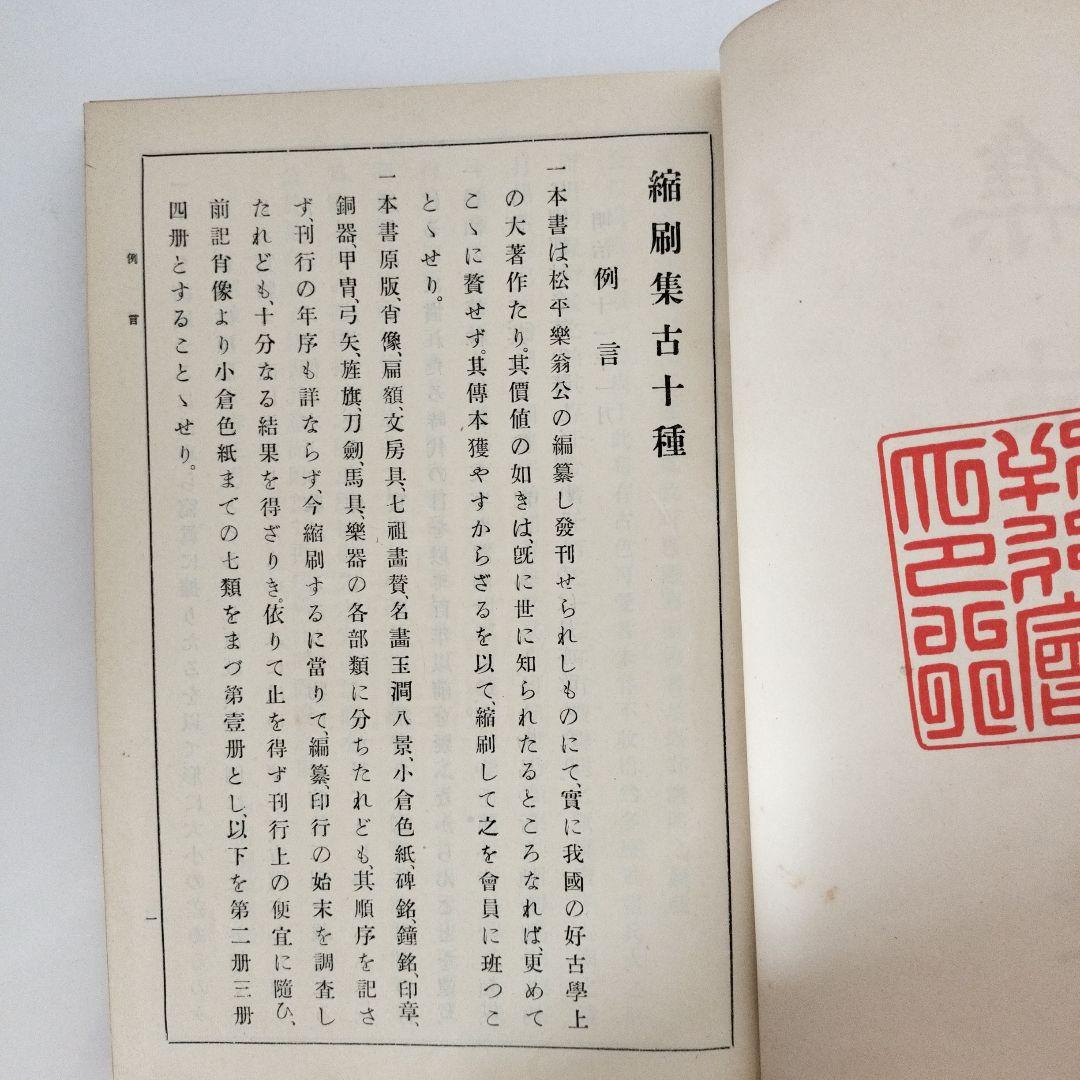 縮刷集古十種
例言
一本書は、松平樂翁公の編纂し發刊せられしものにて、實に我國の好古學上
の大著作たり。其價値の如きは、既に世に知られたるところなれば、更めて
こゝに贅せず。其傳本獲やすからざるを以て、縮刷して之を會員に班つこ
とゝせり。
一本書原版、肖像、扁額、文房具、七祖畫賛、名畫玉澗八景、小倉色紙、碑銘、鐘銘、印章、
銅器、甲冑、弓矢、旌旗、刀劒、馬具、樂器の各部類に分ちたれども、其順序を記さ
ず、刊行の年序も詳ならず、今縮刷するに當りて、編纂、印行の始末を調査し
たれども、十分なる結果を得ざりき。依りて止を得ず刊行上の便宜に隨ひ、
前記肖像より小倉色紙までの七類をまづ第壹册とし、以下を第二册三册
四册とすることゝせり。
例言
一